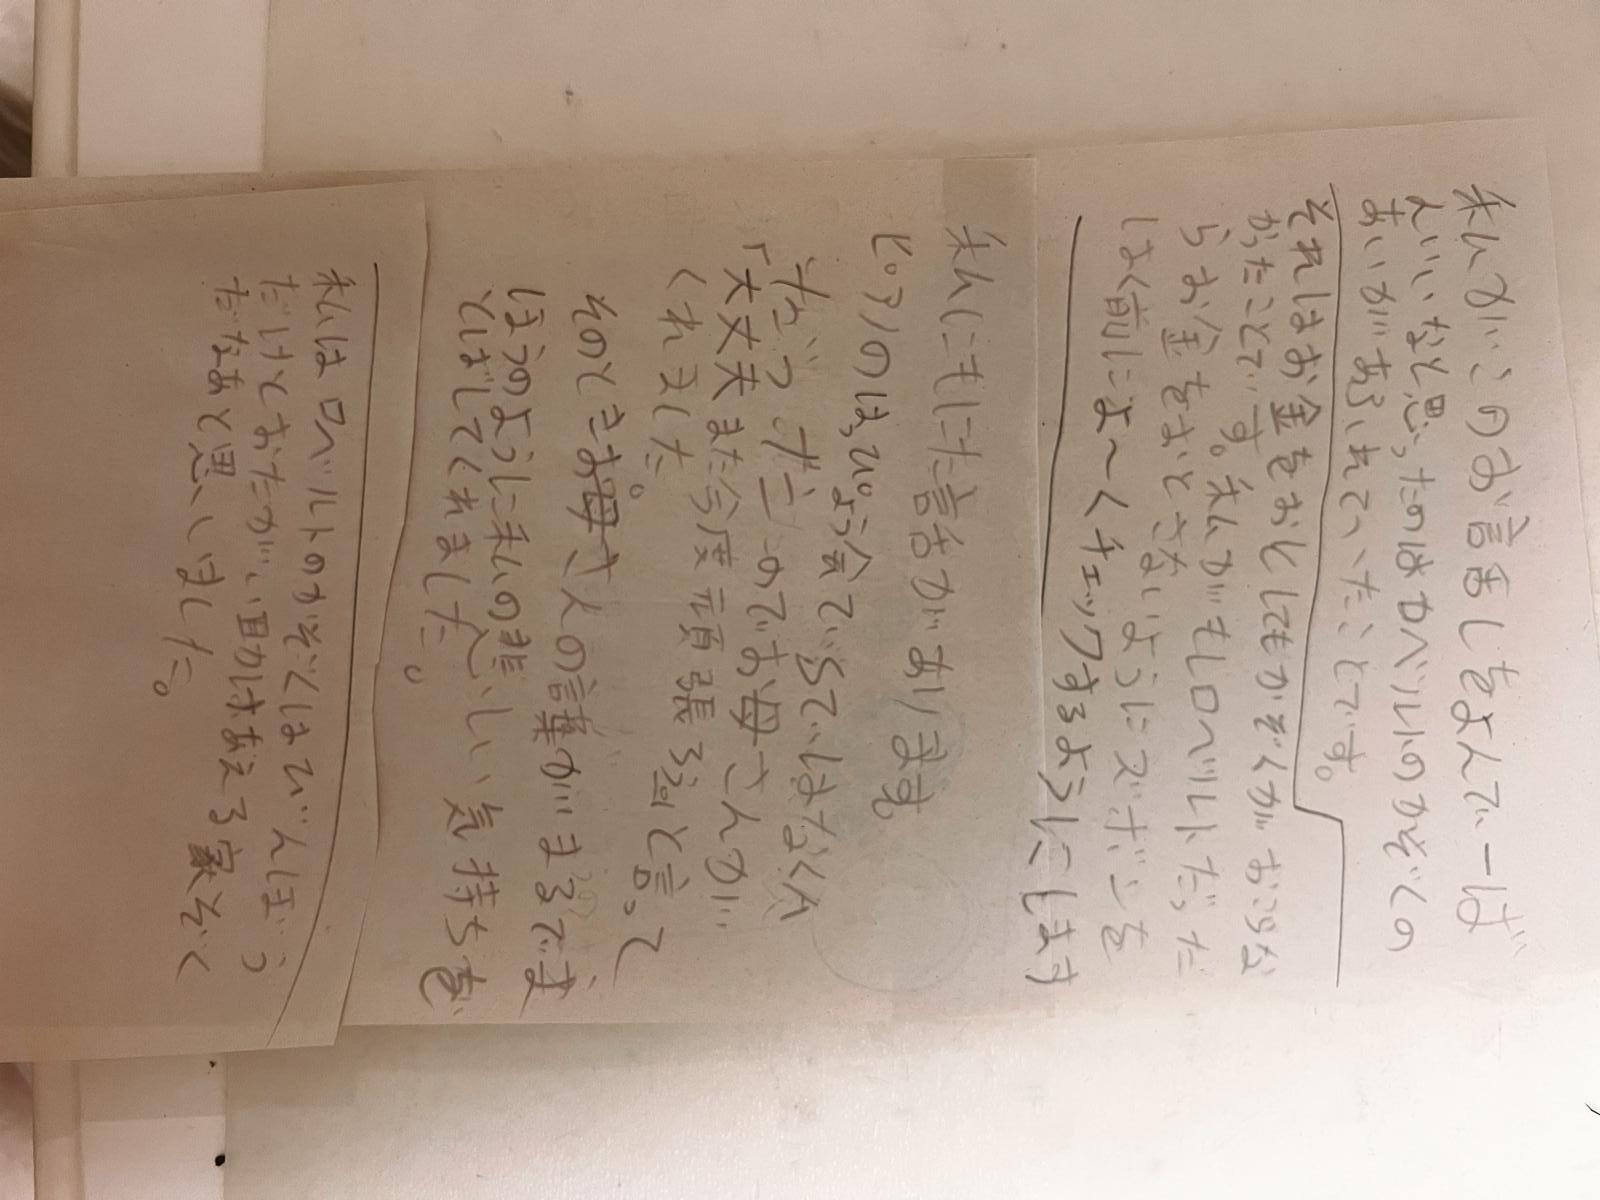 私がこのお話しをよんで一ば
んいいなと思ったのはカベルトのかぞくの
あいがあふれていたことです。
それはお金をおとしてもかぞくがおこらな
かったことです。私がもしロベルトだった
らお金をおとさないようにズボンを
はく前によ〜くチェックするようにします
私にもにた話があります
ピアノのは,ぴょう会で5ではなく4
だっだ のでお母さんが
「大丈夫また今度頑張ろ と言って
くれました
そのときお母さんの言葉がまるでま
ほうのように私の悲しい気持ちを
とばしてくれました。
私はロベルトのかぞくはびんぼう
だけどおたがい助けあえる家ぞく
だなあと思いました。